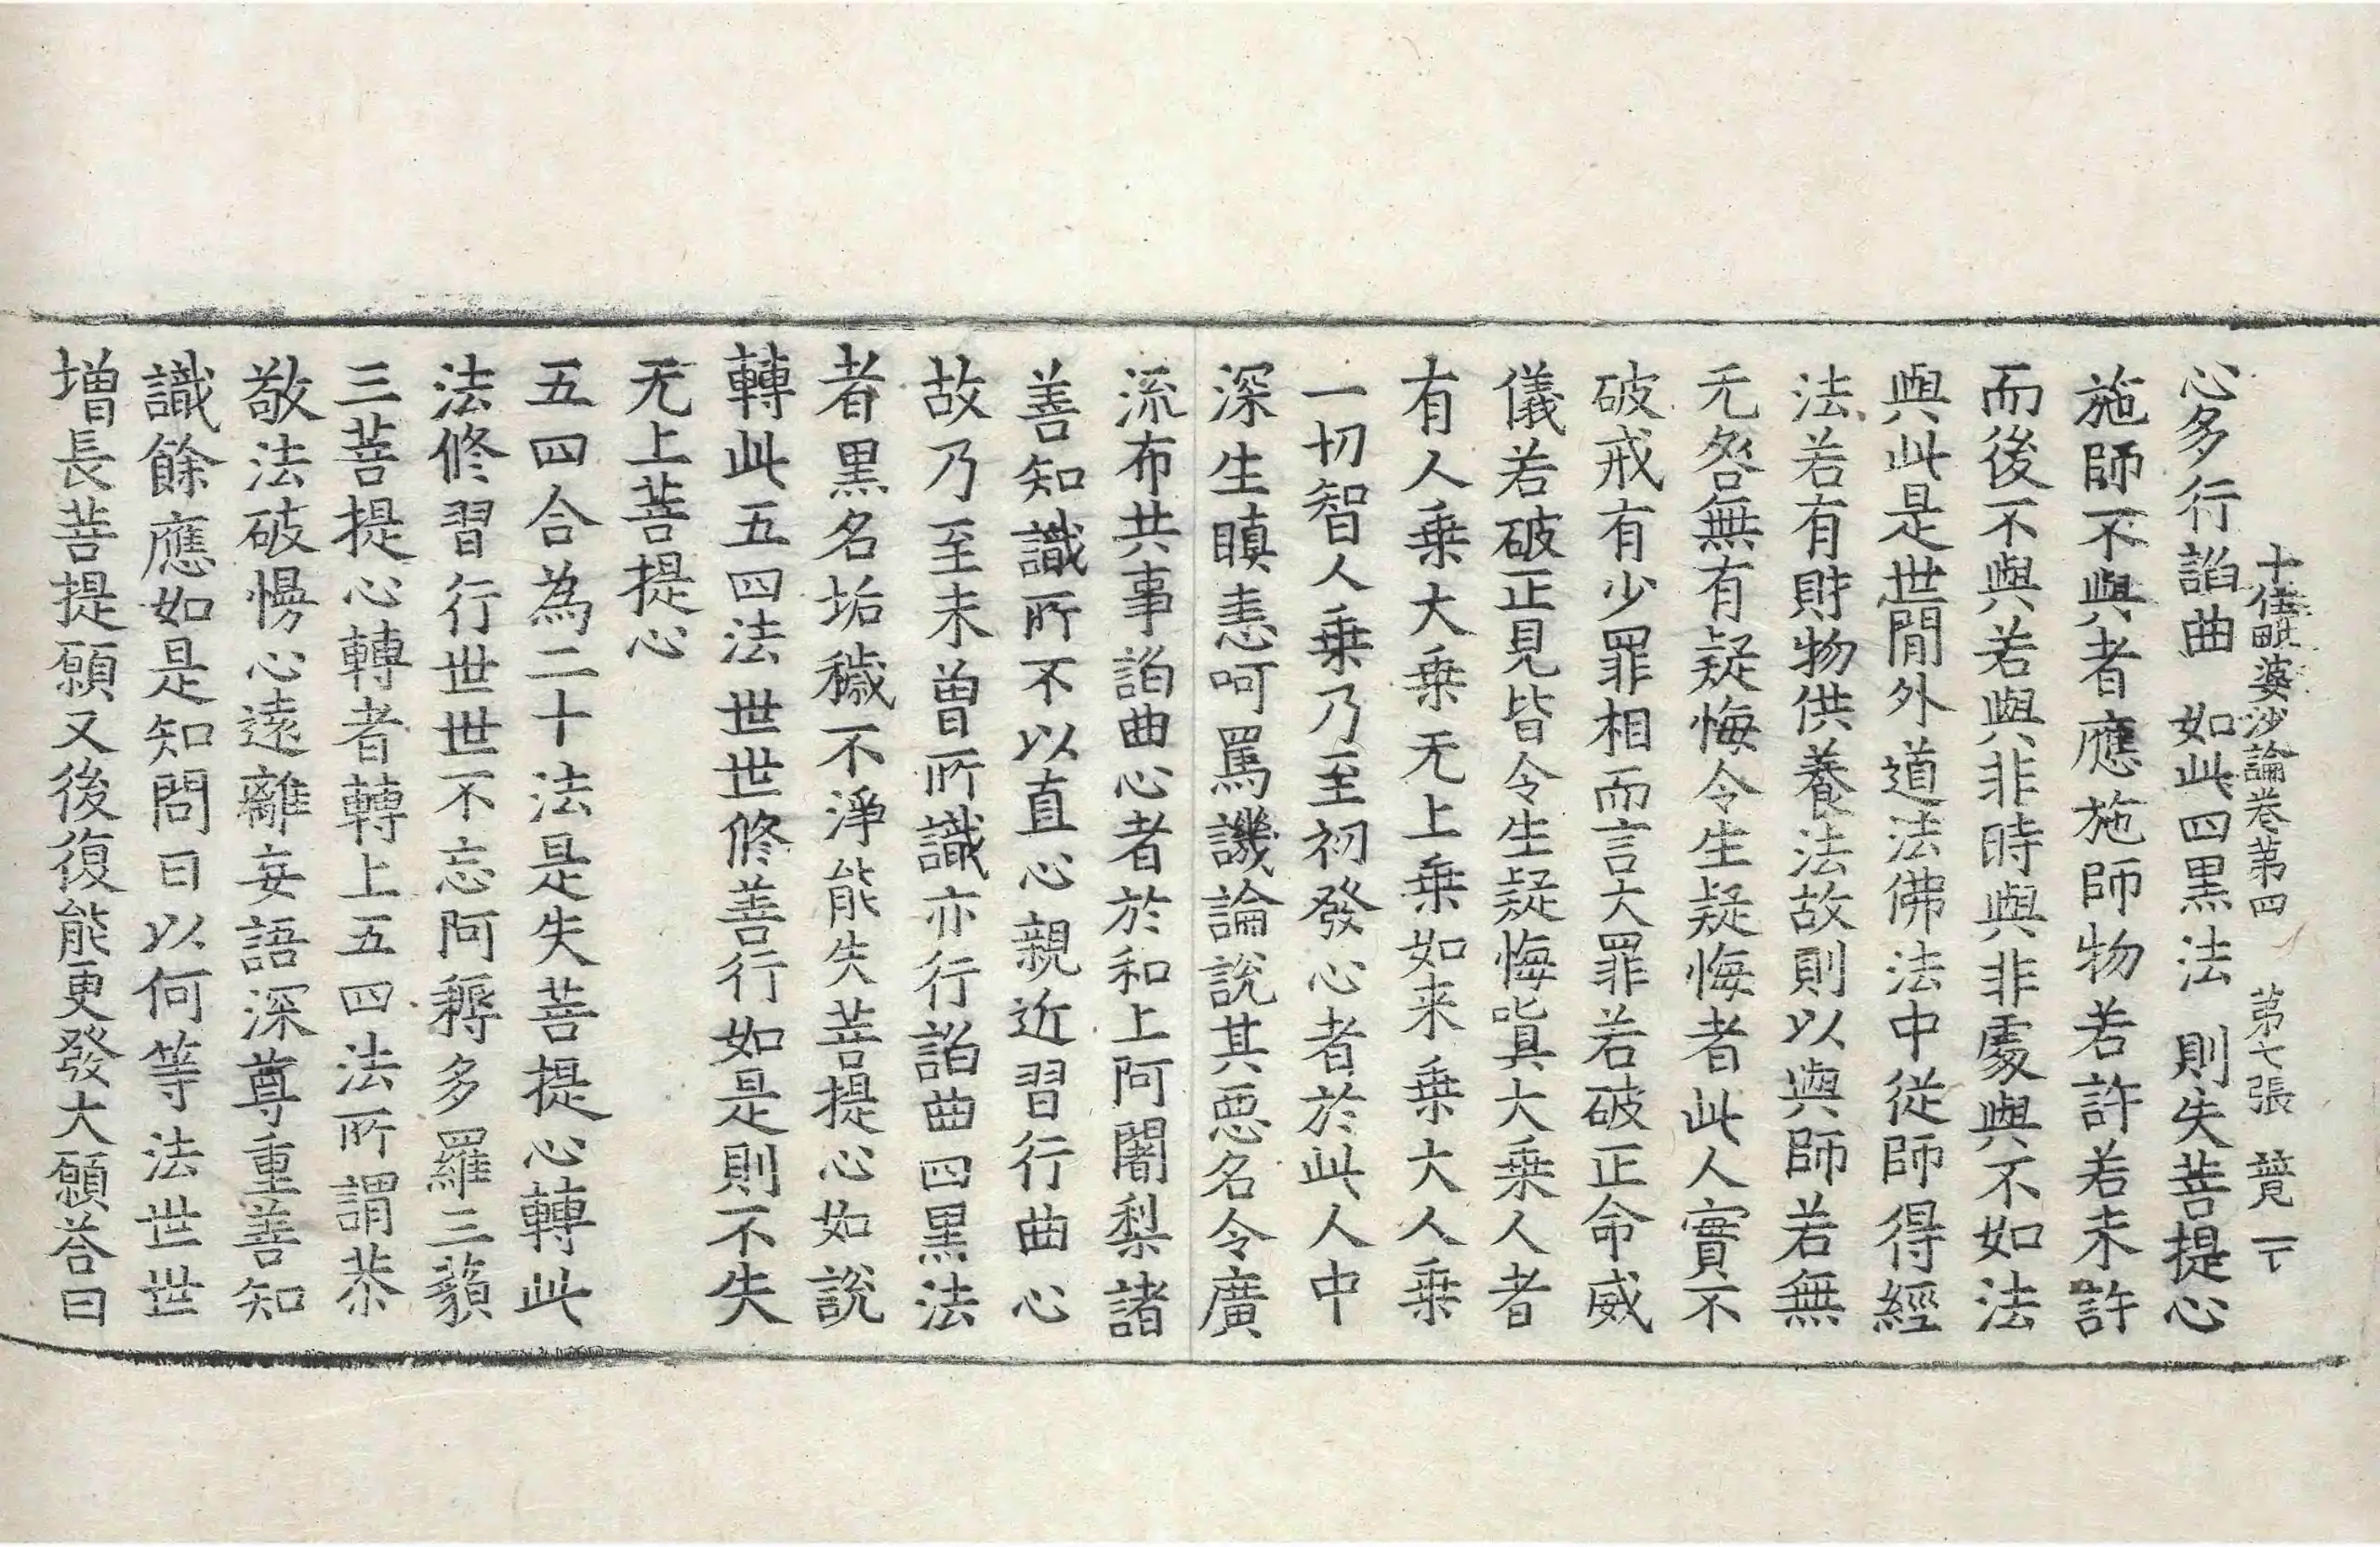 十住毗婆沙論卷第四 第七張 競一下
心多行諂曲 如此四黑法 則失菩提心
施師不與者應施師物若許若未許
而後不與若與非時與非處與不如法
與此是世閒外道法佛法中從師得經
法若有財物供養法故則以與師若無
无咎無有疑悔令生疑悔者此人實不
破戒有少罪相而言大罪若破正命威
儀若破正見皆令生疑悔嗔大乗人者
有人乗大乗无上乗如来乗大人乗
一切智人乗乃至初發心者於此人中
深生瞋恚呵罵譏論說其惡名令廣
流布共事諂曲心者於和上阿闍梨諸
善知識所不以直心親近習行曲心
故乃至未曾所識亦行諂曲四黑法
者黑名垢穢不淨能失菩提心如說
轉此五四法世世修善行如是則不失
无上菩提心
五四合為二十法是失菩提心轉此
法修習行世世不忘阿耨多羅三藐
三菩提心轉者轉上五四法所謂恭
敬法破慢心遠離妄語深尊重善知
識餘應如是知問曰以何等法世世
增長菩提願又後復能更發大願荅曰